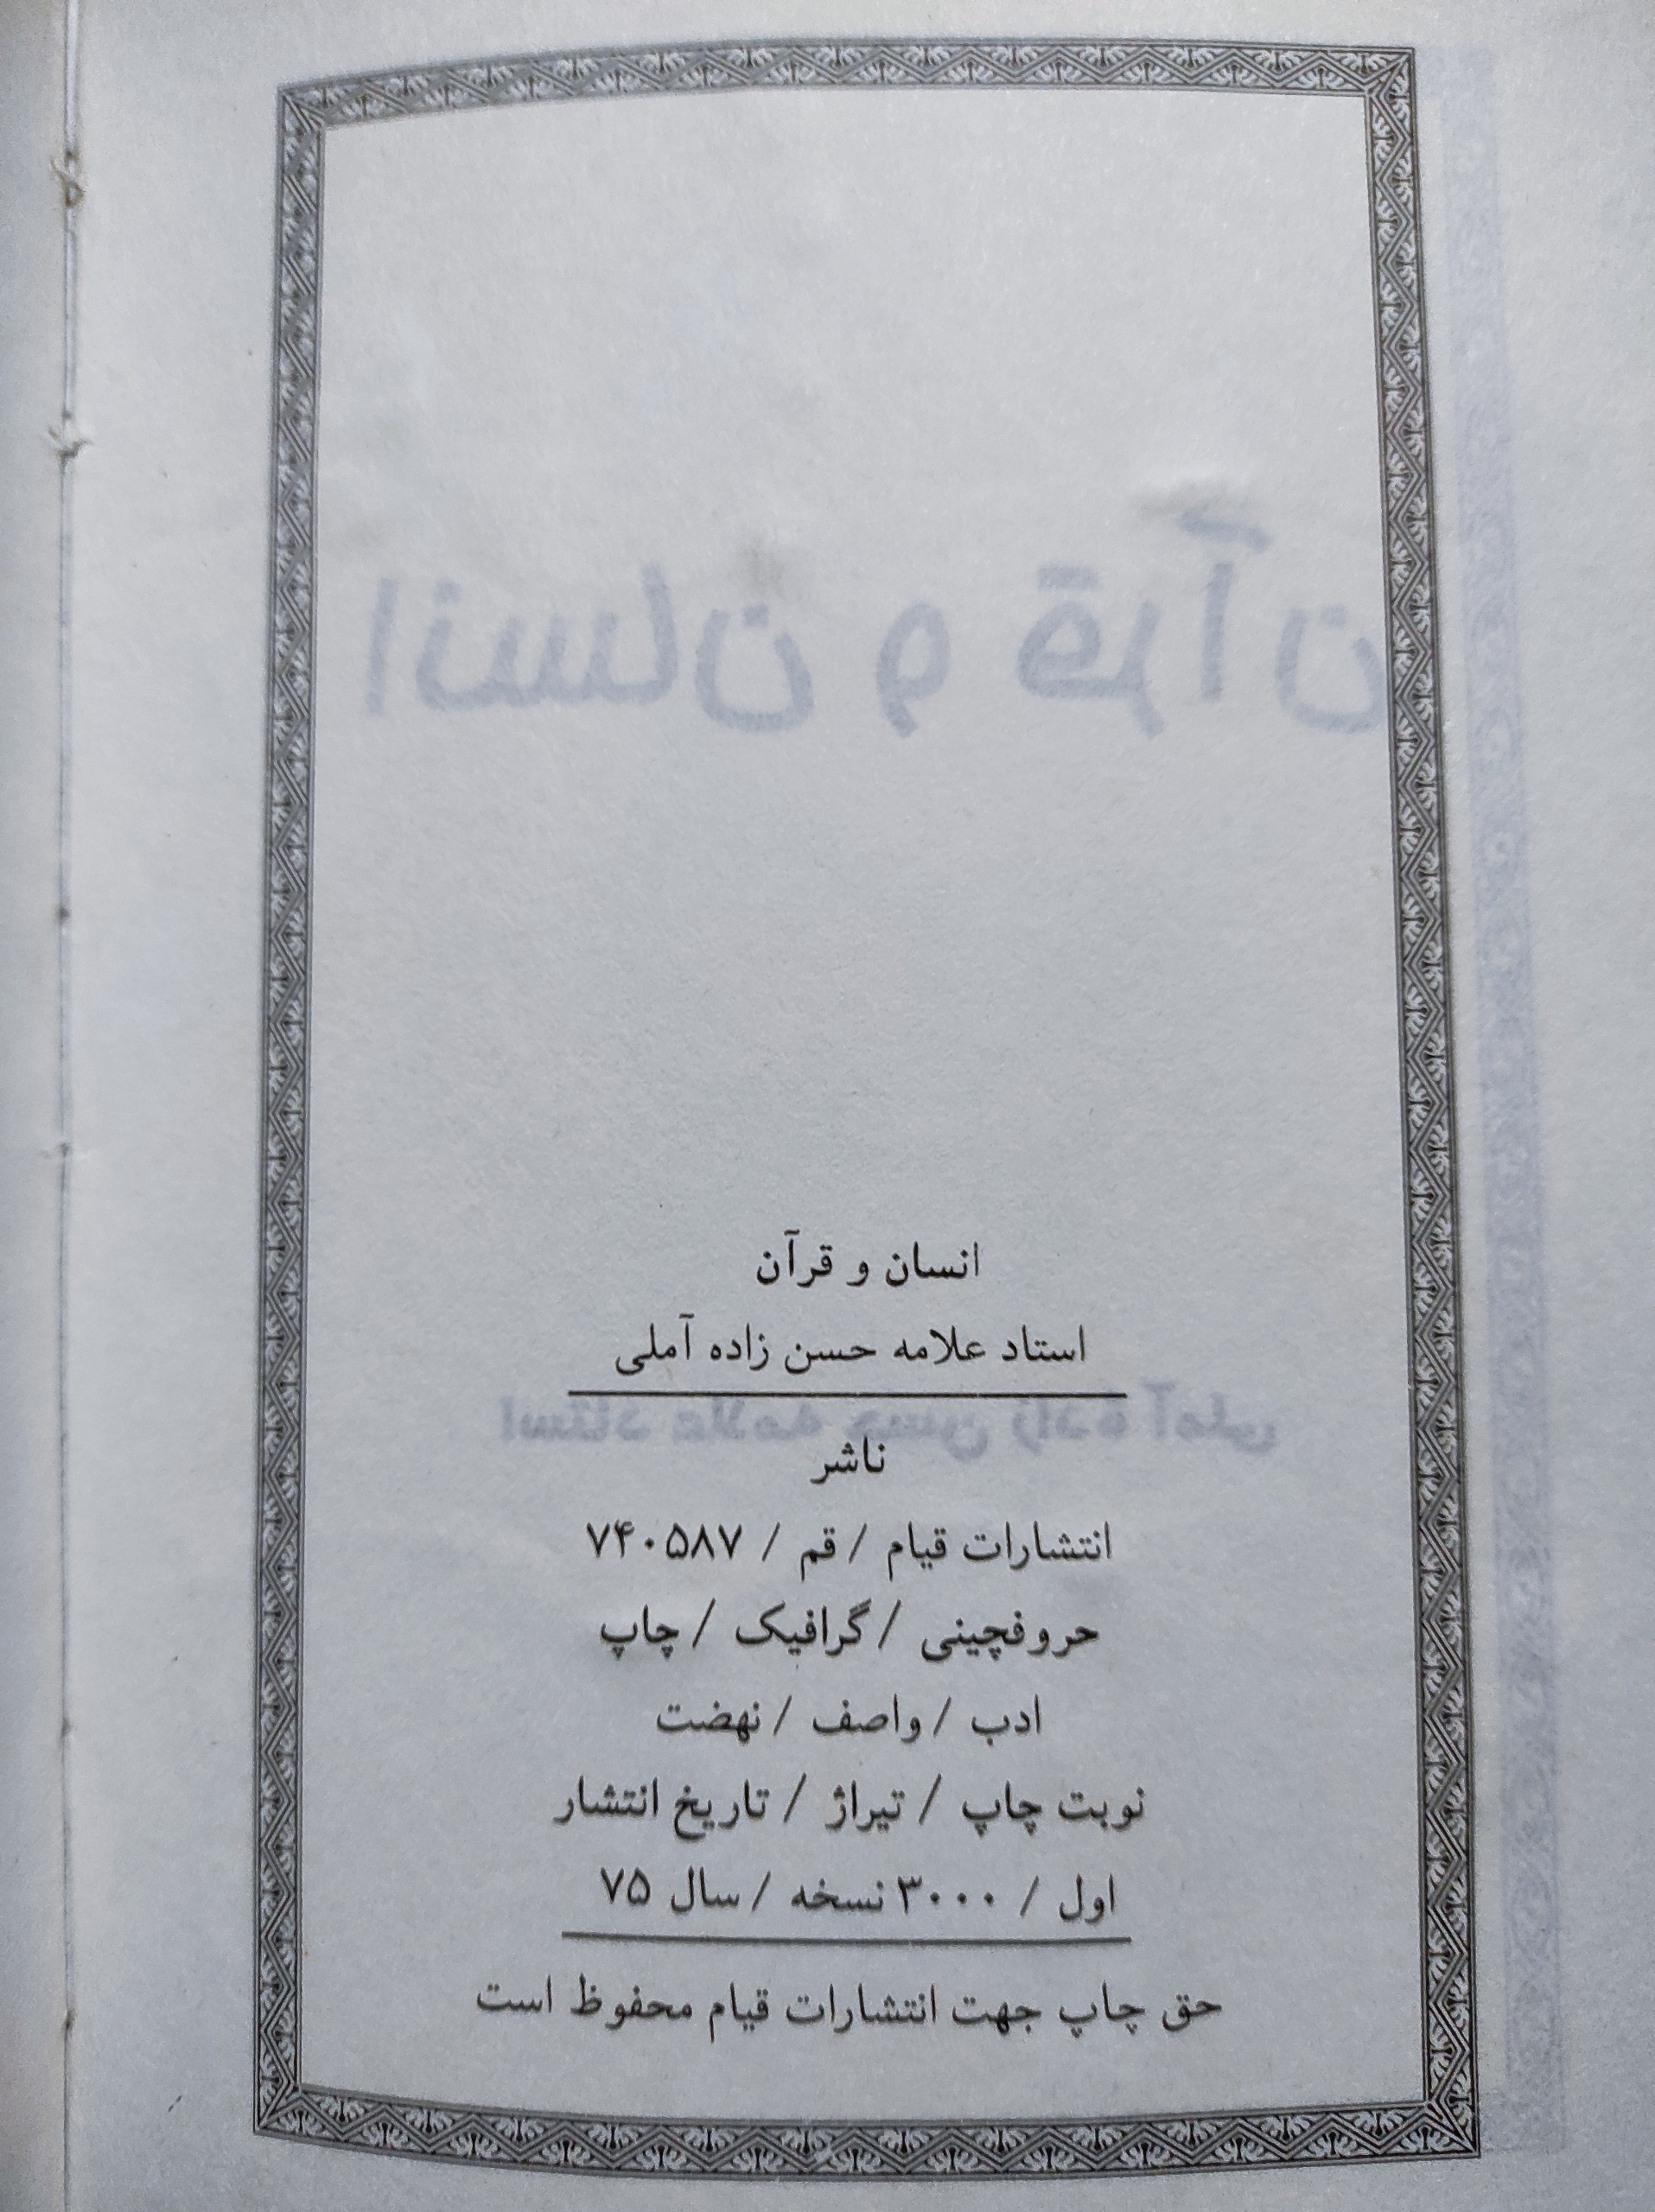 انسان و قرآن
انسان و قرآن
استاد علامه حسن زاده آملی
استاد علامه حسن زاده آملی
ناشر
انتشارات قیام / قم / ۷۴۰۵۸۷
حروفچینی / گرافیک / چاپ
ادب / واصف / نهضت
نوبت چاپ / تیراژ / تاریخ انتشار
اول / ۳۰۰۰ نسخه / سال ۷۵
حق چاپ جهت انتشارات قیام محفوظ است